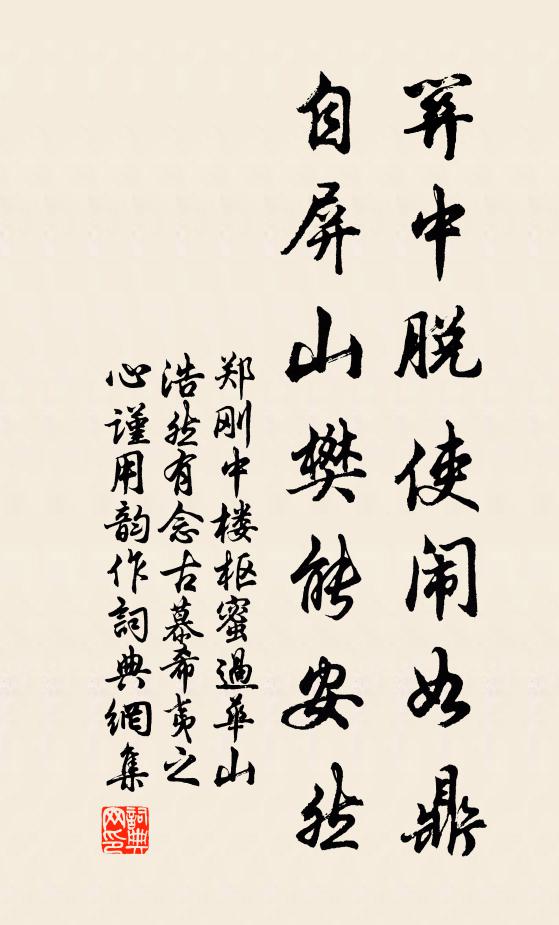 中脱使闹如鼎
自屏山樊能安然
郑刚中楼枢蜜過華山
浩然有念古慕希夷之
心谨用韵作詞典網集
詞典
网印